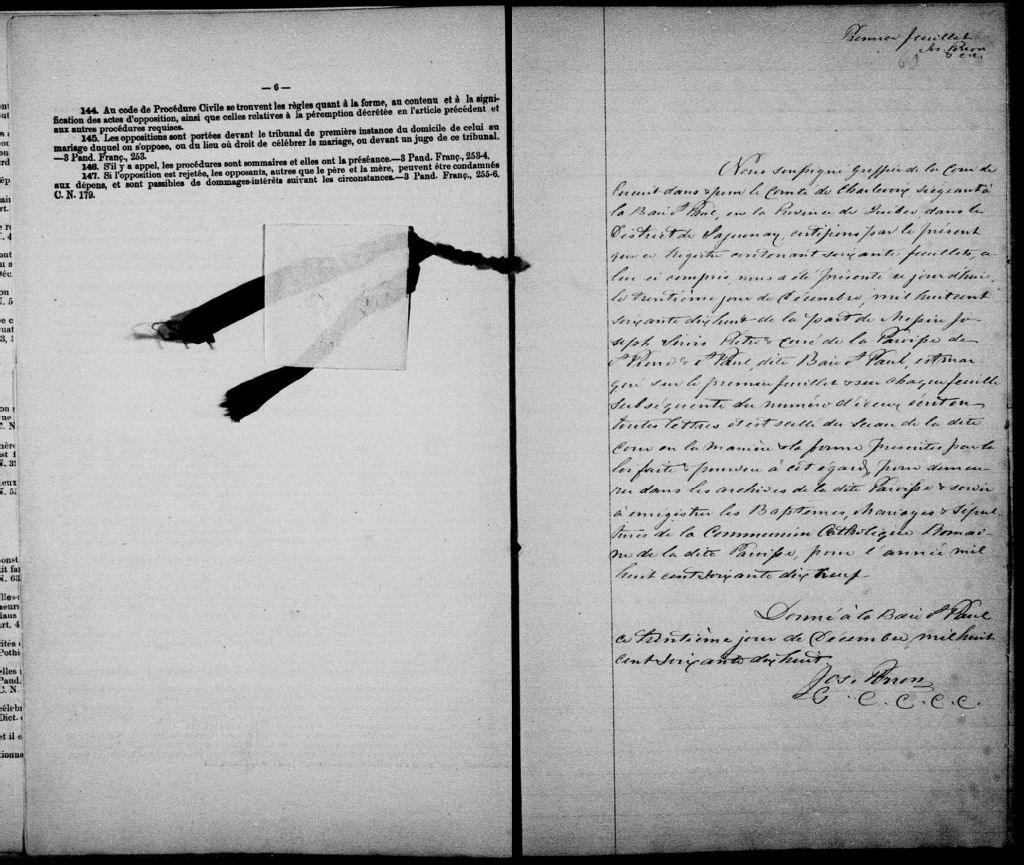 — 6 —
144. Au code de Procédure Civile se trouvent les règles quant à la forme, au contenu et à la signi-
fication des actes d'opposition, ainsi que celles relatives à la péremption décrétée en l'article précédent et
aux autres procédures requises.
145. Les oppositions sont portées devant le tribunal de première instance du domicile de celui au
mariage duquel on s'oppose, ou du lieu où droit de célébrer le mariage, ou devant un juge de ce tribunal.
—3 Pand. Franç., 253.
146. S'il y a appel, les procédures sont sommaires et elles ont la préséance.—3 Pand. Franç., 253-4.
147. Si l'opposition est rejetée, les opposants, autres que le père et la mère, peuvent être condamnés
aux dépens, et sont passibles de dommages-intérêts suivant les circonstances.—3 Pand. Franç., 255-6.
C. N. 179.
Premier feuillet
Jos. Perron
Nous soussigné Greffier de la Cour de
Circuit dans & pour le Comté de Charlevoix siégeant à
la Baie St Paul, en la Province de Québec dans le
District de Saguenay, certifions par le présent
que ce Registre contenant soixante feuillets, ce-
lui ci compris, nous a été présenté ce jourd'hui,
le trentième jour de Décembre, mil huit cent
soixante dix huit de la part de Messire Jo-
seph curé de la Paroisse de
St Pierre & St Paul, dite Baie St Paul, est mar-
qué sur le premier feuillet & sur chaque feuillet
subséquents du numéro d'iceux écrit en
toutes lettres et est scellé du Sceau de la dite
Cour en la manière & la forme prescrites par la
loi faite & pourvue à cet égard, pour demeu-
rer dans les archives de la dite Paroisse & servir
à enregistrer les Baptemes, Mariages & Sépul-
tures de la Communion Catholique Romai-
ne de la dite Paroisse, pour l'année mil
huit cent soixante dix neuf.
Donné à la Baie St Paul
ce trentième jour de Décembre mil huit
cent soixante dix huit.
Jos. Perron
G. C. C. C. C.